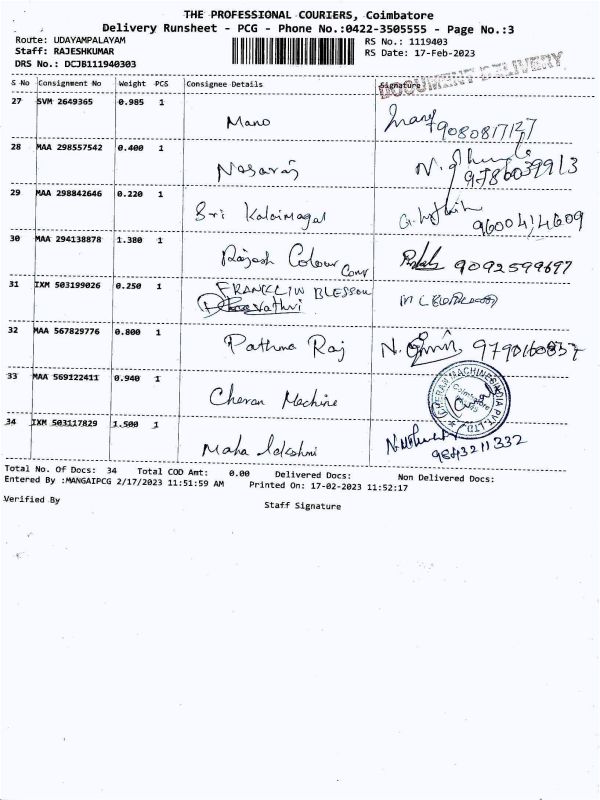 THE PROFESSIONAL COURIERS, Coimbatore
Delivery Runsheet - PCG - Phone No.:0422-3505555 - Page No.:3
Route: UDAYAMPALAYAM RS No.: 1119403
Staff: RAJESHKUMAR RS Date: 17-Feb-2023
DRS No.: DCJB111940303 DOCUMENT DELIVERY
S No Consignment No Weight PCS Consignee Details Signature
27 SVM 2649365 0.985 1 Mano 9080817127
28 MAA 298557542 0.400 1 Nagaraj 9786039913
29 MAA 298842646 0.220 1 Sri Kalaimagal 9600414609
30 MAA 294138878 1.380 1 Rajesh Colour Comp 9092599697
31 IXM 503199026 0.250 1 FRANCKLIN BLESSON
32 MAA 567829776 0.800 1 Pathma Raj
33 MAA 569122411 0.940 1 Cheran Machine CHERAN MACHINES INDIA PVT. LTD. Coimbatore
34 IXM 503117829 1.500 1 Maha lakshmi 9843211332
Total No. Of Docs: 34 Total COD Amt: 0.00 Delivered Docs: Non Delivered Docs:
Entered By :MANGAIPCG 2/17/2023 11:51:59 AM Printed On: 17-02-2023 11:52:17
Verified By Staff Signature